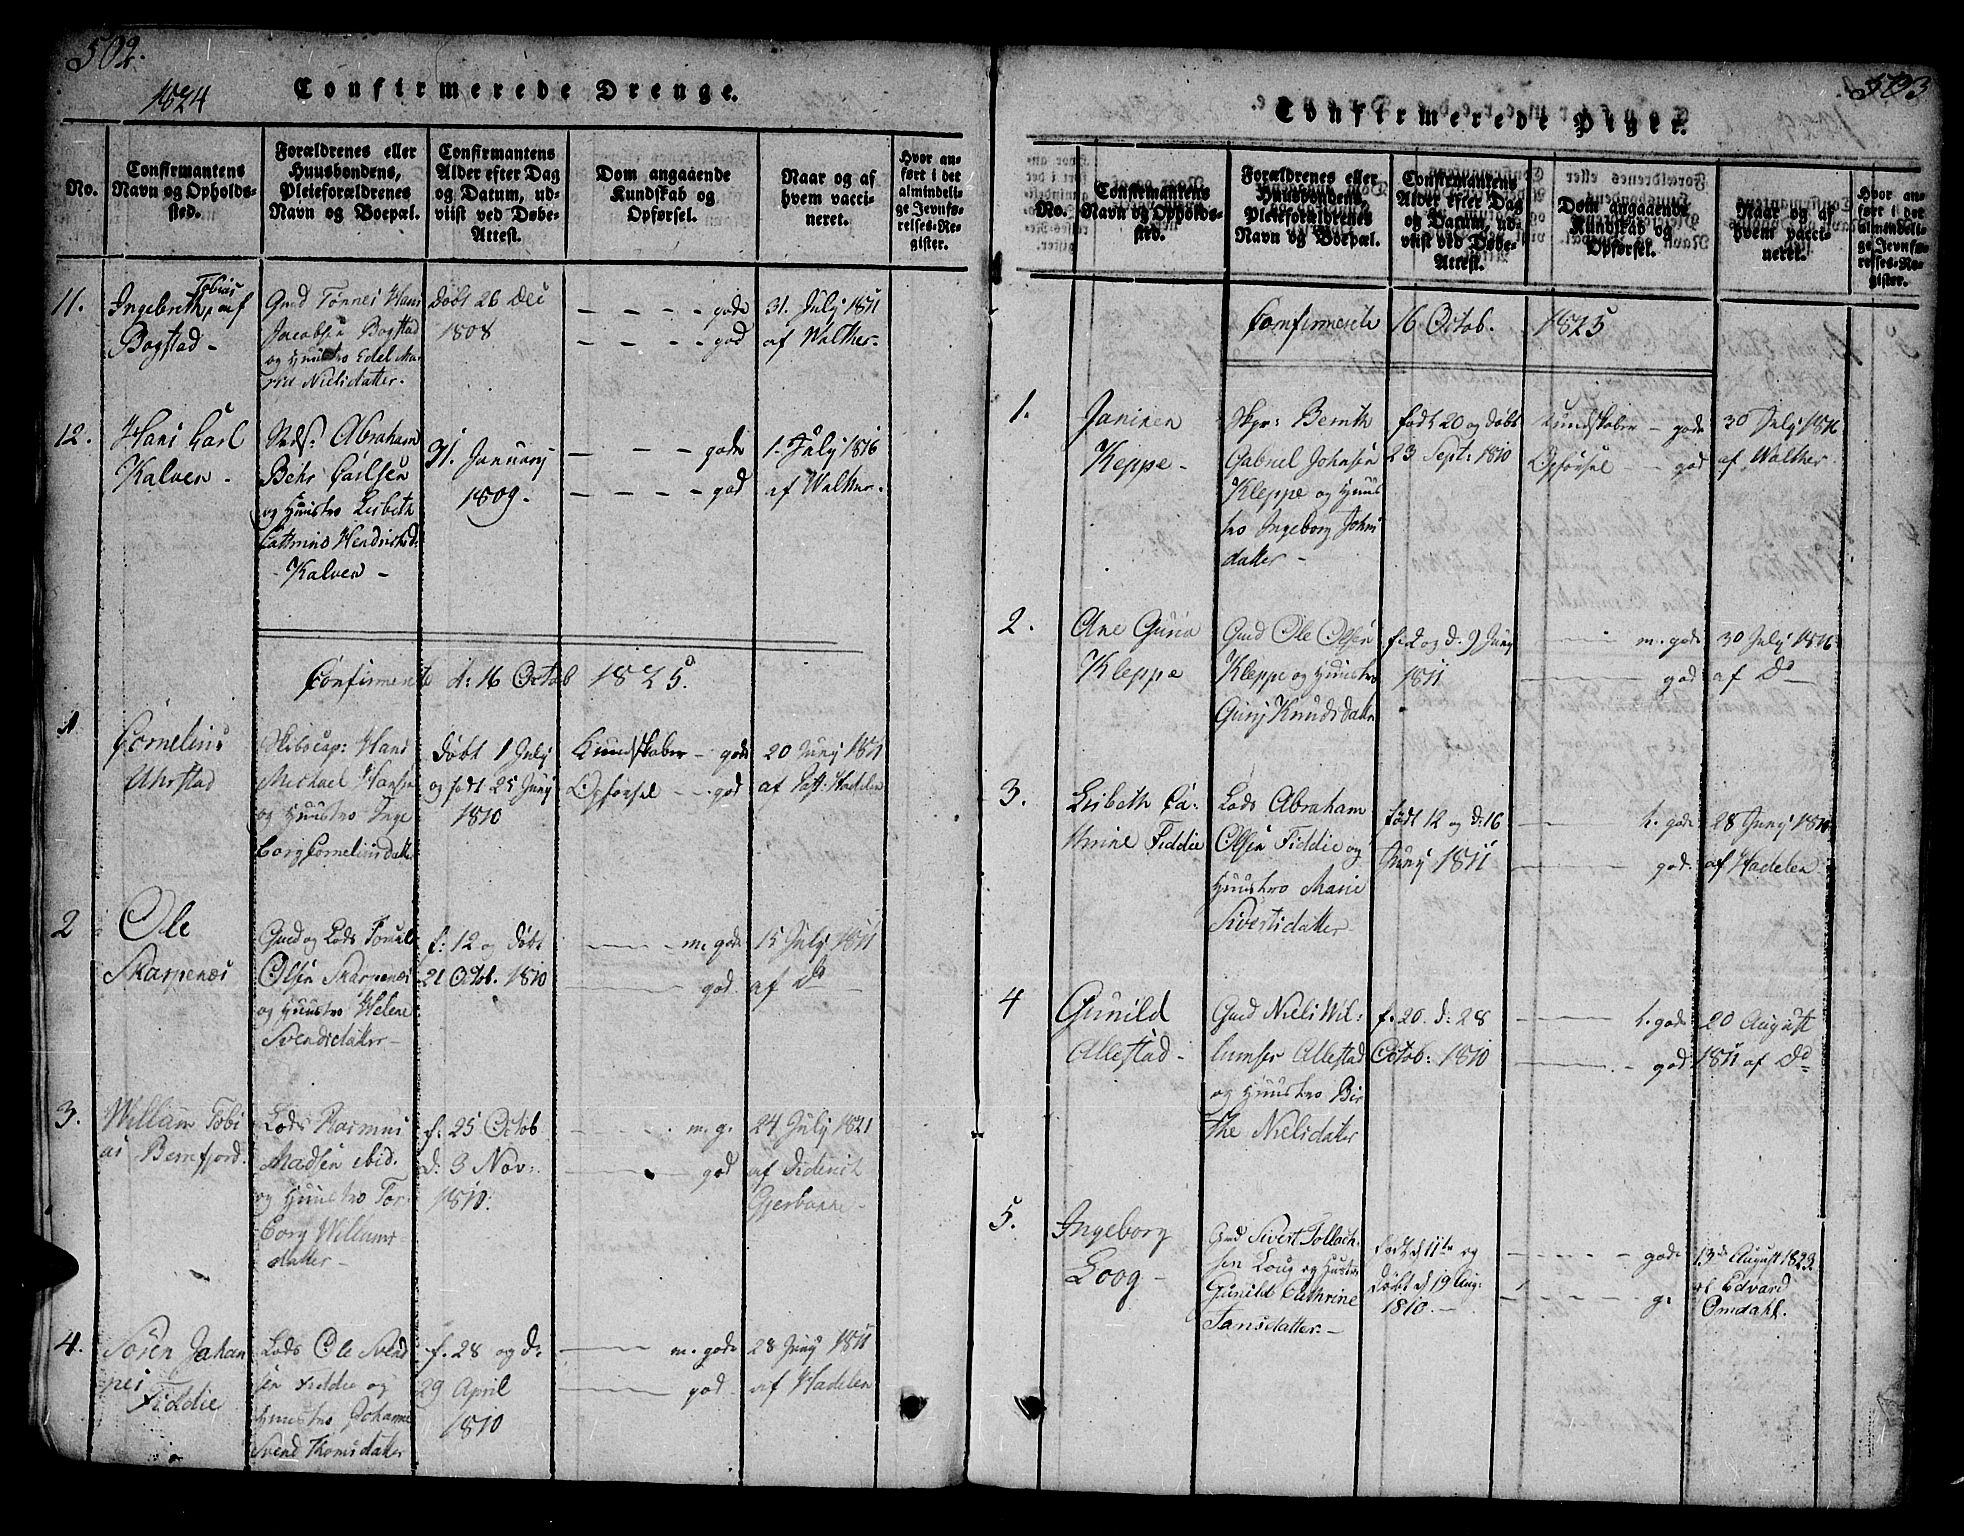 502.
1824
Confirmerede Drenge.
No.
Confirmantens
Navn og Opholds-
sted.
Forældrenes eller
Huusbondens,
Pleieforældrenes
Navn og Boepæl.
Confirmantens
Alder efter Dag
og Datum, ud-
viist ved Døbe-
Attest.
Dom angaaende
Kundskab og
Opførsel.
Naar og af
hvem vacci-
neret.
Hvor an-
ført i det
almindeli-
ge Jevnfø-
relses-Re-
gister.
11.
Tobias
Ingebrith, af
Bogstad -
Gmd Tønnes Hans
Jacobsen Bogstad
og Huustro Edel Ma-
rie Nielsdatter.
døbt 26 Dec
1808
- - - - gode
- - - - god
31. July 1811
af Walther.
12.
Hans Carl
Kalven -
Abraham
Behr Carlsen
og Huustro Lisbeth
Cathrine Hendrichsd:
- Kalven -
31. January
1809.
- - - gode
- - - - god
1. July 1816
af Walther.
Confirmerte d: 16 Octob 1825.
1
Cornelius
Ahrstad
Skibscap: Hans
Michael Hansen
og Huustro Inge
borg Cornelius datter
døbt 1 July
og født 25 Juny
1810
Kundskaber - gode
Opførsel - - god
20 Juny 1811
af Past: Hadelen
2
Ole
Skarpenes
Gmd og Lods Tomas
Olsen Skarpenes
og Huustro Helene
Svendsdatter -
f: 12 og døbt
21 Octob. 1810
m. gode
god.
15 July 1811
af Do
3.
Willam Tobi
as Bernfjord.
Lods Rasmus
Madsen ibid.
og Huustro Tor
borg Willums
datter -
f. 25 Octob
d. 3 Nov:
1810.
m. g.
god
24 July 1821
af Diderich
4.
Sören Johan
nes
Fiddie
Lods Ole Svend
sen Fiddie og
Huustro Johanne
Svend Thomsdatter
f. 28 og d.
29 April
1810
m. gode
god -
28 Juny 1811
af Hadelen
503
Confirmerede Piger.
No.
Confirmantens
Navn og Opholds-
sted.
Forældrenes eller
Huusbondens,
Pleieforældrenes
Navn og Boepæl.
Confirmantens
Alder efter Dag
og Datum, ud-
viist ved Døbe-
Attest.
Dom angaaende
Kundskab og
Opførsel.
Naar og af
hvem vacci-
neret.
Hvor an-
ført i det
almindeli-
ge Jevnfø-
relses-Re-
gister.
Confirmerte 16 Octob. 1825
1.
Janiken
Keppe -
Skpr: Bernth
Gabriel Johnsen
Kleppe og Huus
tro Ingeborg Johns
datter -
født 20 og døbt
23 Sept: 1810
Kundskaber - gode
Opførsel - god
30 July 1816
af Walther
2.
Ane Guria
Kleppe
Gmd Ole Olsen
Kleppe og Huustro
Gury Knudsdatter
f. 2 og d. 9 Juny
1811
m. gode
god
30 July 1816
af Do
3.
Lisbeth Ca-
thrine Fiddie
Lods Abraham
Olsen Fiddie og
Huustro Marie
Sivertsdatter
født 12 og d: 16
Juny 1811
t. gode
god.
28 Juny
af Hadelen
4
Gunild
Allestad -
Gmd Niels Wil-
lumsen Allestad
og Huustro Bir
the Nielsdatter
f. 20. d: 28
Octob: 1810
t. gode
- god
20 August
1811 af Do
5.
Ingeborg
Loog -
Gmd Sivert Tollach-
sen Loug og Hustro
Gunild Cathrine
Jansdatter. -
født d 11te og
døbt d 19 Aug:
1810. -
- - - - gode
- - - - g.
13de August 1823.
af Edvard
Omdahl.